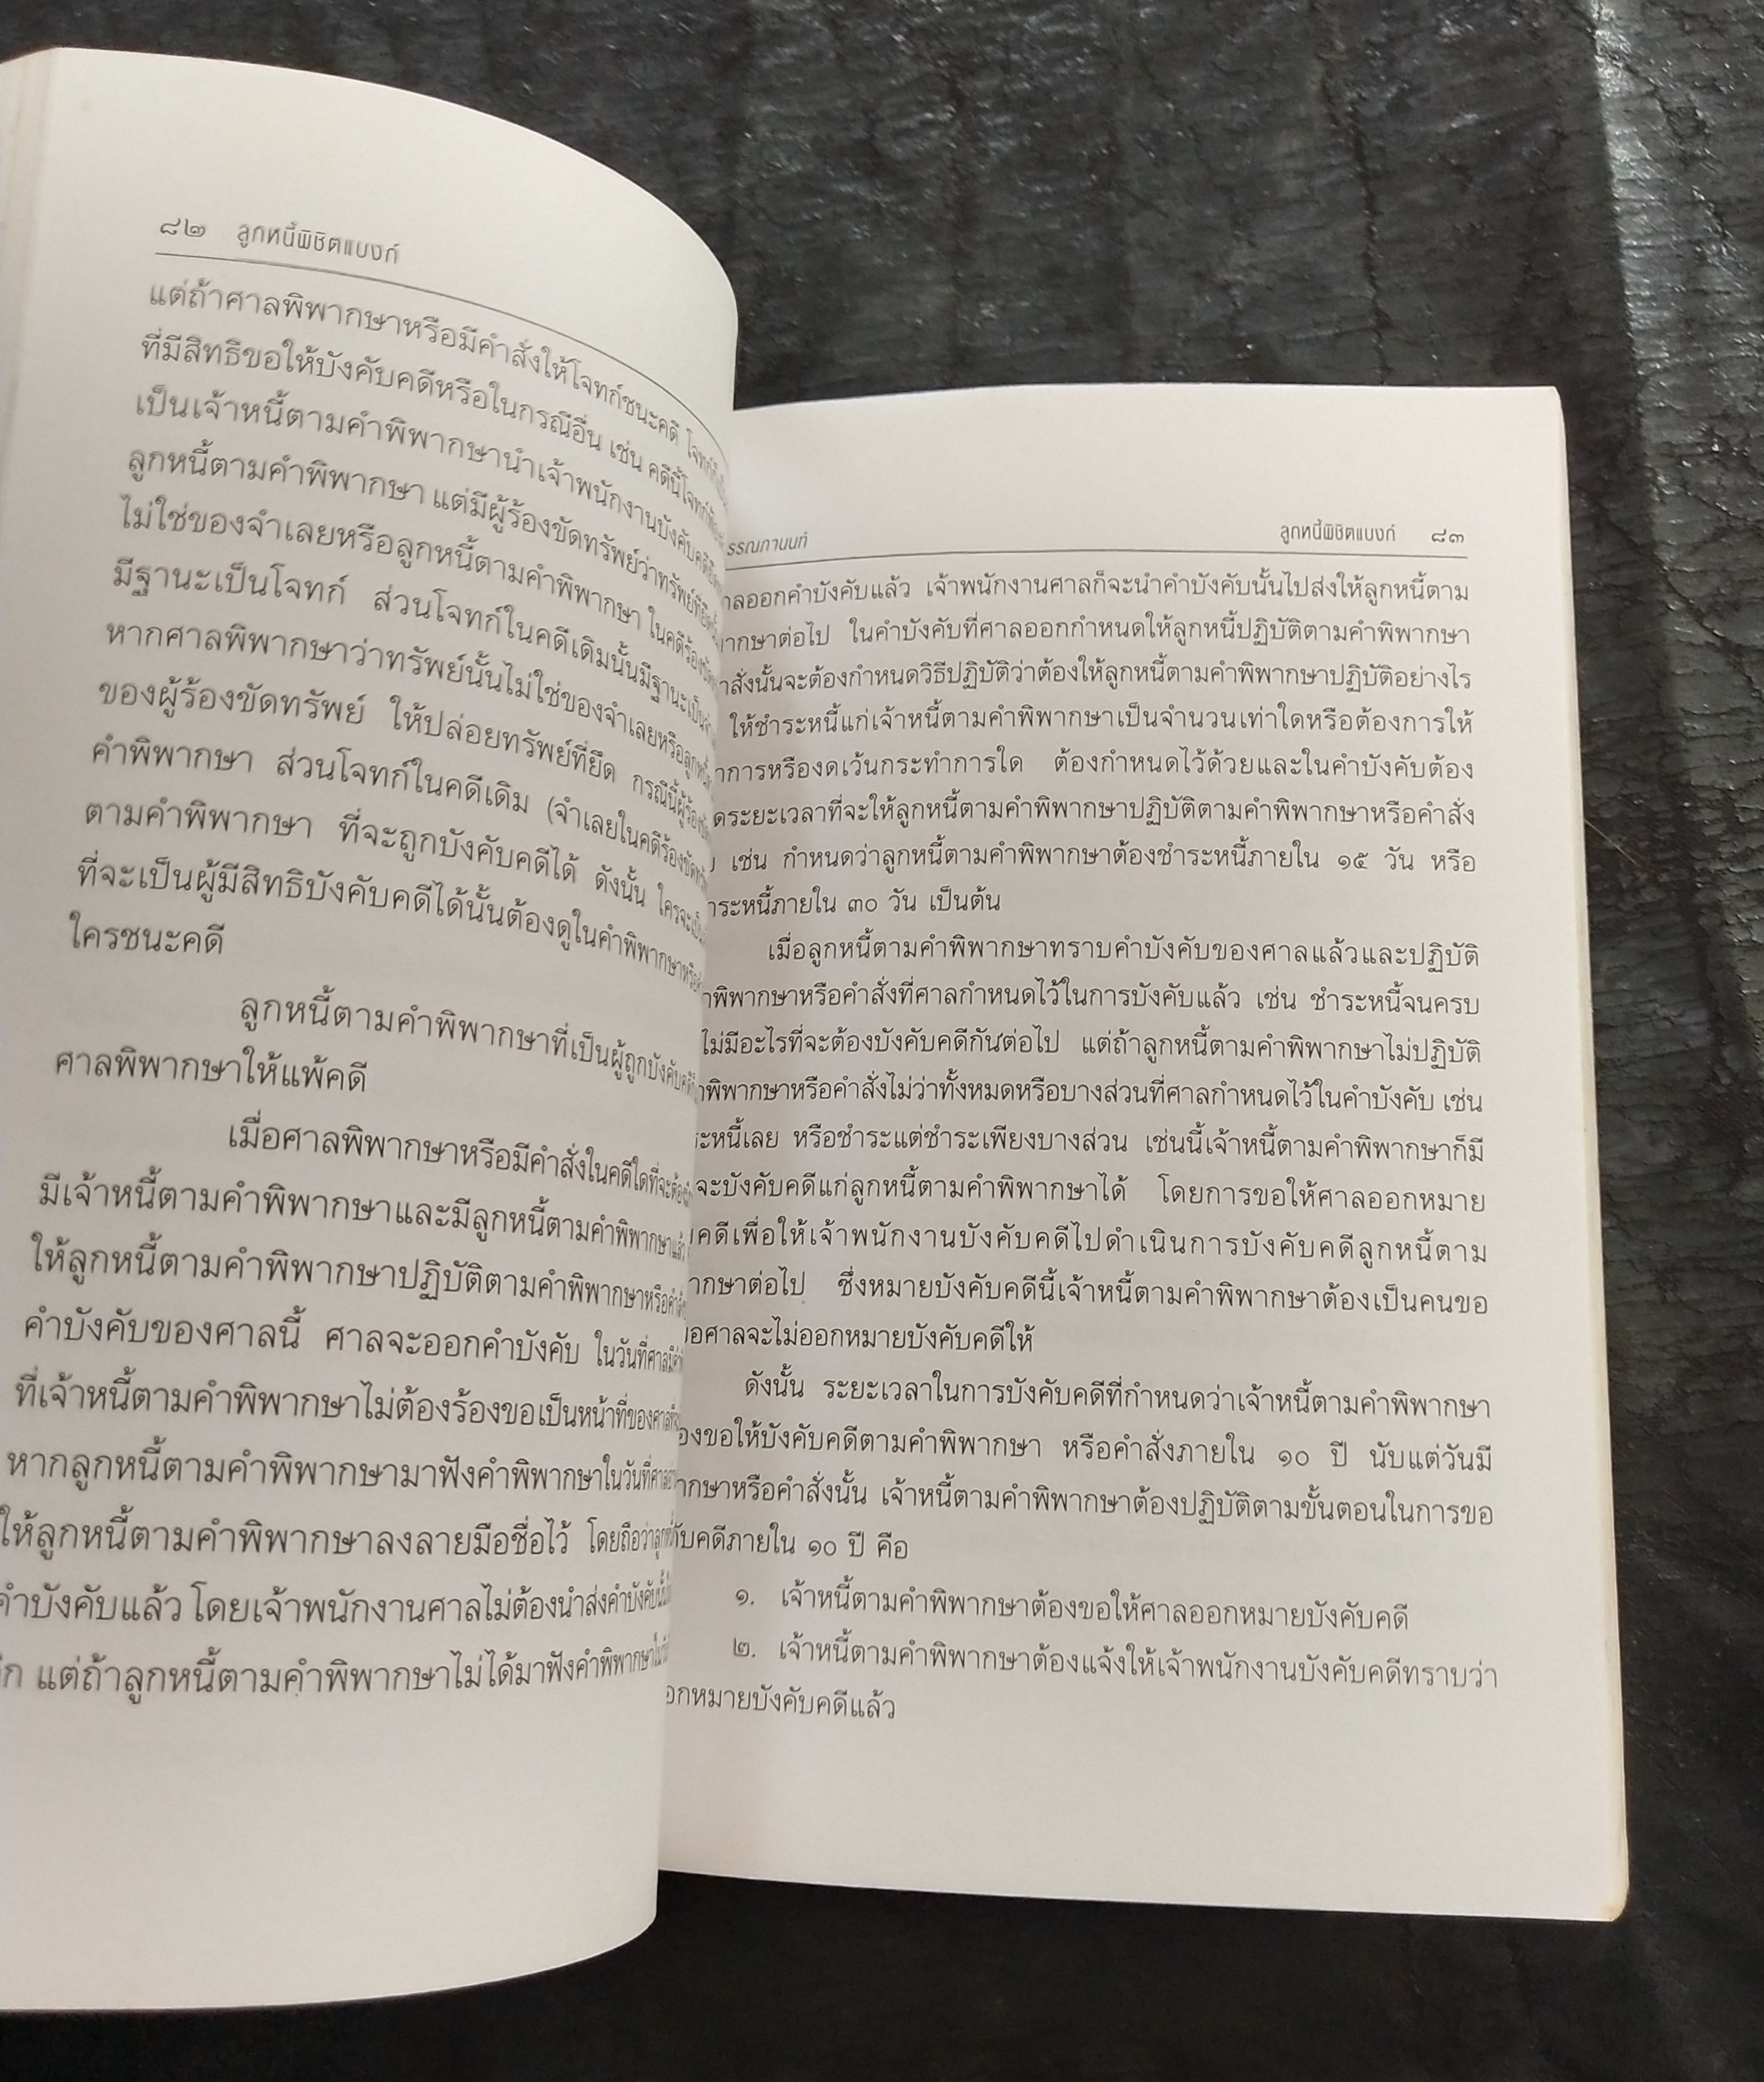 ๘๒ ลูกหนี้พิชิตแบงก์
แต่ถ้าศาลพิพากษาหรือมีคำสั่งให้โจทก์ชนะคดี
ที่มีสิทธิขอให้บังคับคดีหรือในกรณีอื่น เช่น คดีนี้โจทก์
เป็นเจ้าหนี้ตามคำพิพากษานำเจ้าพนักงานบังคับคดี
ลูกหนี้ตามคำพิพากษา แต่มีผู้ร้องขัดทรัพย์ว่าทรัพย์ที่ยึด
ไม่ใช่ของจำเลยหรือลูกหนี้ตามคำพิพากษา ในคดีร้อง
มีฐานะเป็นโจทก์ ส่วนโจทก์ในคดีเดิมนั้นมีฐานะเป็น
หากศาลพิพากษาว่าทรัพย์นั้นไม่ใช่ของจำเลยหรือ
ของผู้ร้องขัดทรัพย์ ให้ปล่อยทรัพย์ที่ยึด กรณีนี้
คำพิพากษา ส่วนโจทก์ในคดีเดิม (จำเลยในคดีร้อง
ตามคำพิพากษา ที่จะถูกบังคับคดีได้ ดังนั้น ใครจะ
ที่จะเป็นผู้มีสิทธิบังคับคดีได้นั้นต้องดูในคำพิพากษา
ใครชนะคดี
ลูกหนี้ตามคำพิพากษาที่เป็นผู้ถูกบังคับคดี
ศาลพิพากษาให้แพ้คดี
เมื่อศาลพิพากษาหรือมีคำสั่งในคดีใดที่จะ
มีเจ้าหนี้ตามคำพิพากษาและมีลูกหนี้ตามคำพิพากษา
ให้ลูกหนี้ตามคำพิพากษาปฏิบัติตามคำพิพากษาหรือ
คำบังคับของศาลนี้ ศาลจะออกคำบังคับ ในวันที่ศาล
ที่เจ้าหนี้ตามคำพิพากษาไม่ต้องร้องขอเป็นหน้าที่ของ
หากลูกหนี้ตามคำพิพากษามาฟังคำพิพากษาในวันที่
ให้ลูกหนี้ตามคำพิพากษาลงลายมือชื่อไว้ โดยถือว่า
คำบังคับแล้ว โดยเจ้าพนักงานศาลไม่ต้องนำส่ง
แต่ถ้าลูกหนี้ตามคำพิพากษาไม่ได้มาฟังคำพิพากษา
รรณภานนท์ ลูกหนี้พิชิตแบงก์ ๘๓
าลออกคำบังคับแล้ว เจ้าพนักงานศาลก็จะนำคำบังคับนั้นไปส่งให้ลูกหนี้ตาม
ากษาต่อไป ในคำบังคับที่ศาลออกกำหนดให้ลูกหนี้ปฏิบัติตามคำพิพากษา
าสั่งนั้นจะต้องกำหนดวิธีปฏิบัติว่าต้องให้ลูกหนี้ตามคำพิพากษาปฏิบัติอย่างไร
ให้ชำระหนี้แก่เจ้าหนี้ตามคำพิพากษาเป็นจำนวนเท่าใดหรือต้องการให้
าการหรืองดเว้นกระทำการใด ต้องกำหนดไว้ด้วยและในคำบังคับต้อง
ดระยะเวลาที่จะให้ลูกหนี้ตามคำพิพากษาปฏิบัติตามคำพิพากษาหรือคำสั่ง
เช่น กำหนดว่าลูกหนี้ตามคำพิพากษาต้องชำระหนี้ภายใน ๑๕ วัน หรือ
าระหนี้ภายใน ๓๐ วัน เป็นต้น
เมื่อลูกหนี้ตามคำพิพากษาทราบคำบังคับของศาลแล้วและปฏิบัติ
าพิพากษาหรือคำสั่งที่ศาลกำหนดไว้ในการบังคับแล้ว เช่น ชำระหนี้จนครบ
ไม่มีอะไรที่จะต้องบังคับคดีกันต่อไป แต่ถ้าลูกหนี้ตามคำพิพากษาไม่ปฏิบัติ
าพิพากษาหรือคำสั่งไม่ว่าทั้งหมดหรือบางส่วนที่ศาลกำหนดไว้ในคำบังคับ เช่น
ะหนี้เลย หรือชำระแต่ชำระเพียงบางส่วน เช่นนี้เจ้าหนี้ตามคำพิพากษาก็มี
จะบังคับคดีแก่ลูกหนี้ตามคำพิพากษาได้ โดยการขอให้ศาลออกหมาย
คดีเพื่อให้เจ้าพนักงานบังคับคดีไปดำเนินการบังคับคดีลูกหนี้ตาม
ากษาต่อไป ซึ่งหมายบังคับคดีนี้เจ้าหนี้ตามคำพิพากษาต้องเป็นคนขอ
อศาลจะไม่ออกหมายบังคับคดีให้
ดังนั้น ระยะเวลาในการบังคับคดีที่กำหนดว่าเจ้าหนี้ตามคำพิพากษา
องขอให้บังคับคดีตามคำพิพากษา หรือคำสั่งภายใน ๑๐ ปี นับแต่วันมี
ากษาหรือคำสั่งนั้น เจ้าหนี้ตามคำพิพากษาต้องปฏิบัติตามขั้นตอนในการขอ
ับคดีภายใน ๑๐ ปี คือ
๑. เจ้าหนี้ตามคำพิพากษาต้องขอให้ศาลออกหมายบังคับคดี
๒. เจ้าหนี้ตามคำพิพากษาต้องแจ้งให้เจ้าพนักงานบังคับคดีทราบว่า
อกหมายบังคับคดีแล้ว